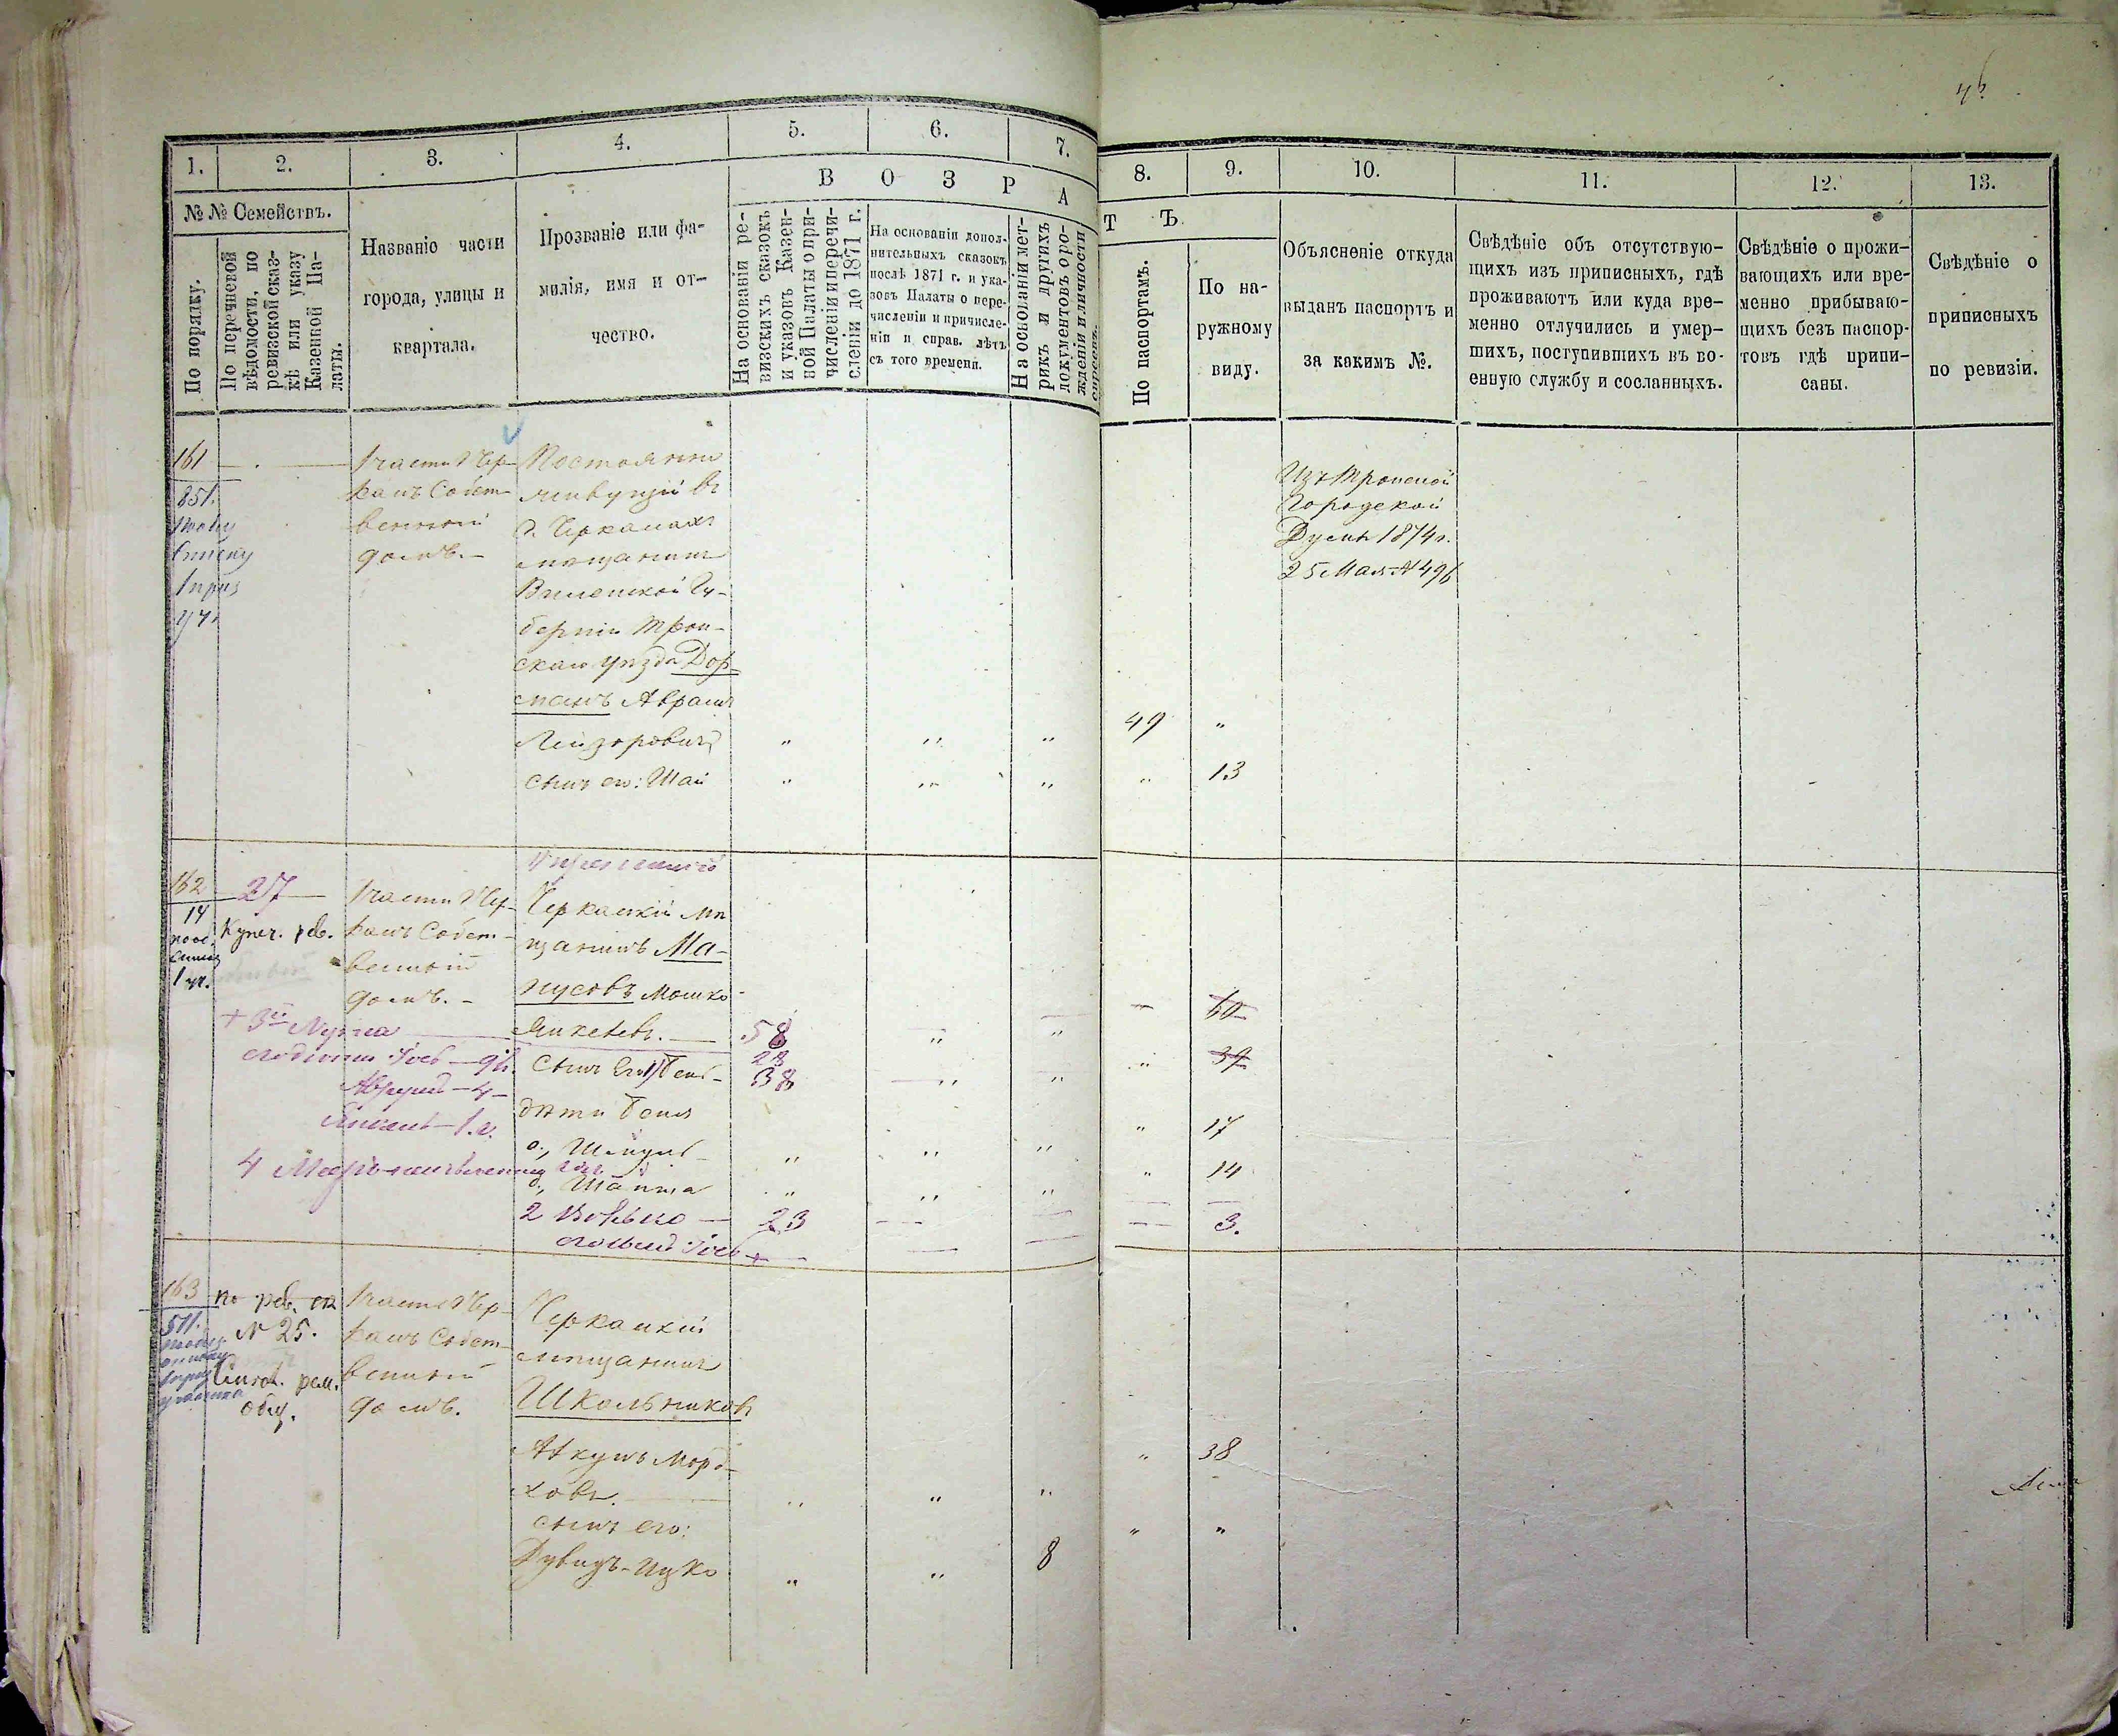 46
1.
2.
3.
4.
5.
6.
7.
8.
9.
10.
11.
12.
13.
В О З Р А
Т Ъ.
№ № Семействъ.
По порядку.
По перечневой
вѣдомости, по
ревизской сказ-
кѣ или указу
Казенной Па-
латы.
Названіе части
города, улицы и
квартала.
Прозваніе или фа-
милія, имя и от-
чество.
На основаніи ре-
визскихъ сказокъ
и указовъ Казен-
ной Палаты о при-
численіи и перечи-
сленіи до 1871 г.
На основаніи допол-
нительныхъ сказокъ
послѣ 1871 г. и ука-
зовъ Палаты о пере-
численіи и причисле-
ніи и справ. лѣтъ
съ того времени.
На основаніи мет-
рикъ и другихъ
документовъ о ро-
жденіи и личности
По паспортамъ.
По на-
ружному
виду.
Объясненіе откуда
выданъ паспортъ и
за какимъ №.
Свѣдѣніе объ отсутствую-
щихъ изъ приписныхъ, гдѣ
проживаютъ или куда вре-
менно отлучились и умер-
шихъ, поступившихъ въ во-
енную службу и сосланныхъ.
Свѣдѣніе о прожи-
вающихъ или вре-
менно прибываю-
щихъ безъ паспор-
товъ гдѣ припи-
саны.
Свѣдѣніе о
приписныхъ
по ревизіи.
161
851.
1 части г Чер-
касъ Собст-
венный
домъ.-
Постоянно
живущій въ
г. Черкасахъ
мѣщанинъ
Виленской Гу-
берніи Трок-
скаго уѣзда Дор-
манъ Аврамъ
Лейзеровичъ " " " 49 "
сынъ его: Шай " " " " 13
Изъ Трокской
Городской
Думы 1874 г.
25 Мая № 496
162
14
27
Купеч. рев.
1 части г Чер-
касъ Собст-
венный
домъ.-
Черкаскій мѣ-
щанинъ Ма-
нусовъ Мошко
Янкелевъ. 58 " " 60
28
Сынъ Его 1) Бень- 38 " " " 39
дѣти Беня
а., " " " " 17
б., " " " " 14
2 Волько 23 3.
163
511.
по рев. ск
№ 25.
рем.
общ.
1 части г Чер-
касъ Собст-
венный
домъ.
Черкаскій
мѣщанинъ
Школьниковъ
Аккумъ Морд-
ховъ. " " " " 38
сынъ его:
Дувидъ-Ицко " " 8 " "